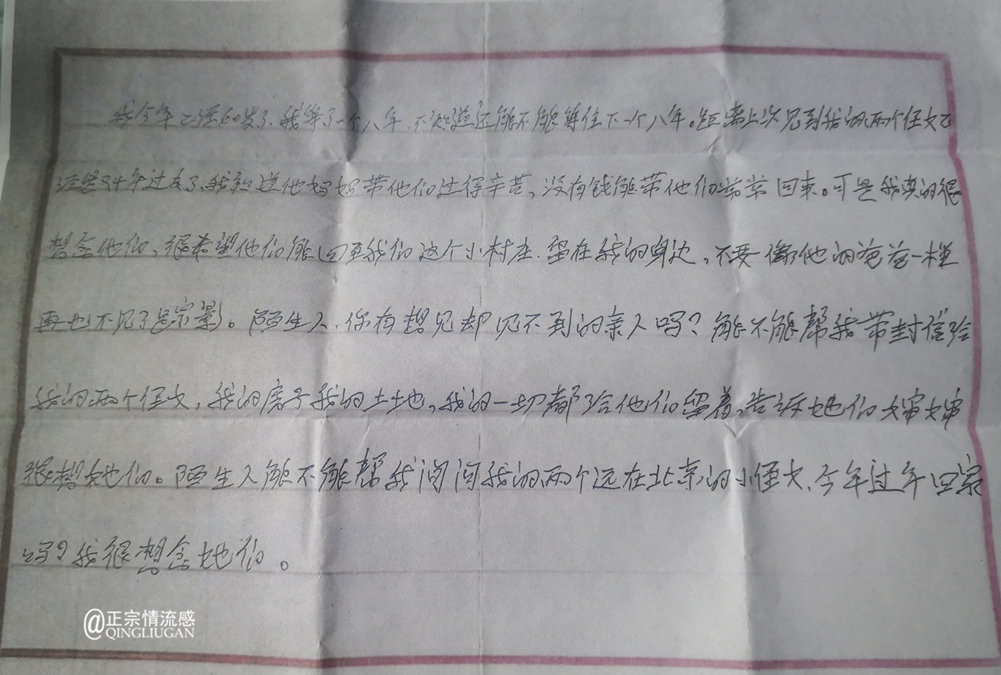 我今年已经60岁了，我等了一个八年，不知道还能不能等住下一个八年。距离上次见到我的两个侄女已
经是3年过去了，我知道他妈妈带他们过得辛苦，没有钱能带他们常常回来。可是我真的很
想念他们，很希望他们能回到我们这个小村庄，留在我的身边，不要像他的爸爸一样
再也不见了踪影。陌生人，你有想见却见不到的亲人吗？能不能帮我带封信给
我的两个侄女，我的房子我的土地，我的一切都给他们留着，告诉她们大伯
很想她们。陌生人能不能帮我问问我的两个远在北京的小侄女，今年过年回家
吗？我很想念她们。
@正宗情流感
QINGLIUGAN